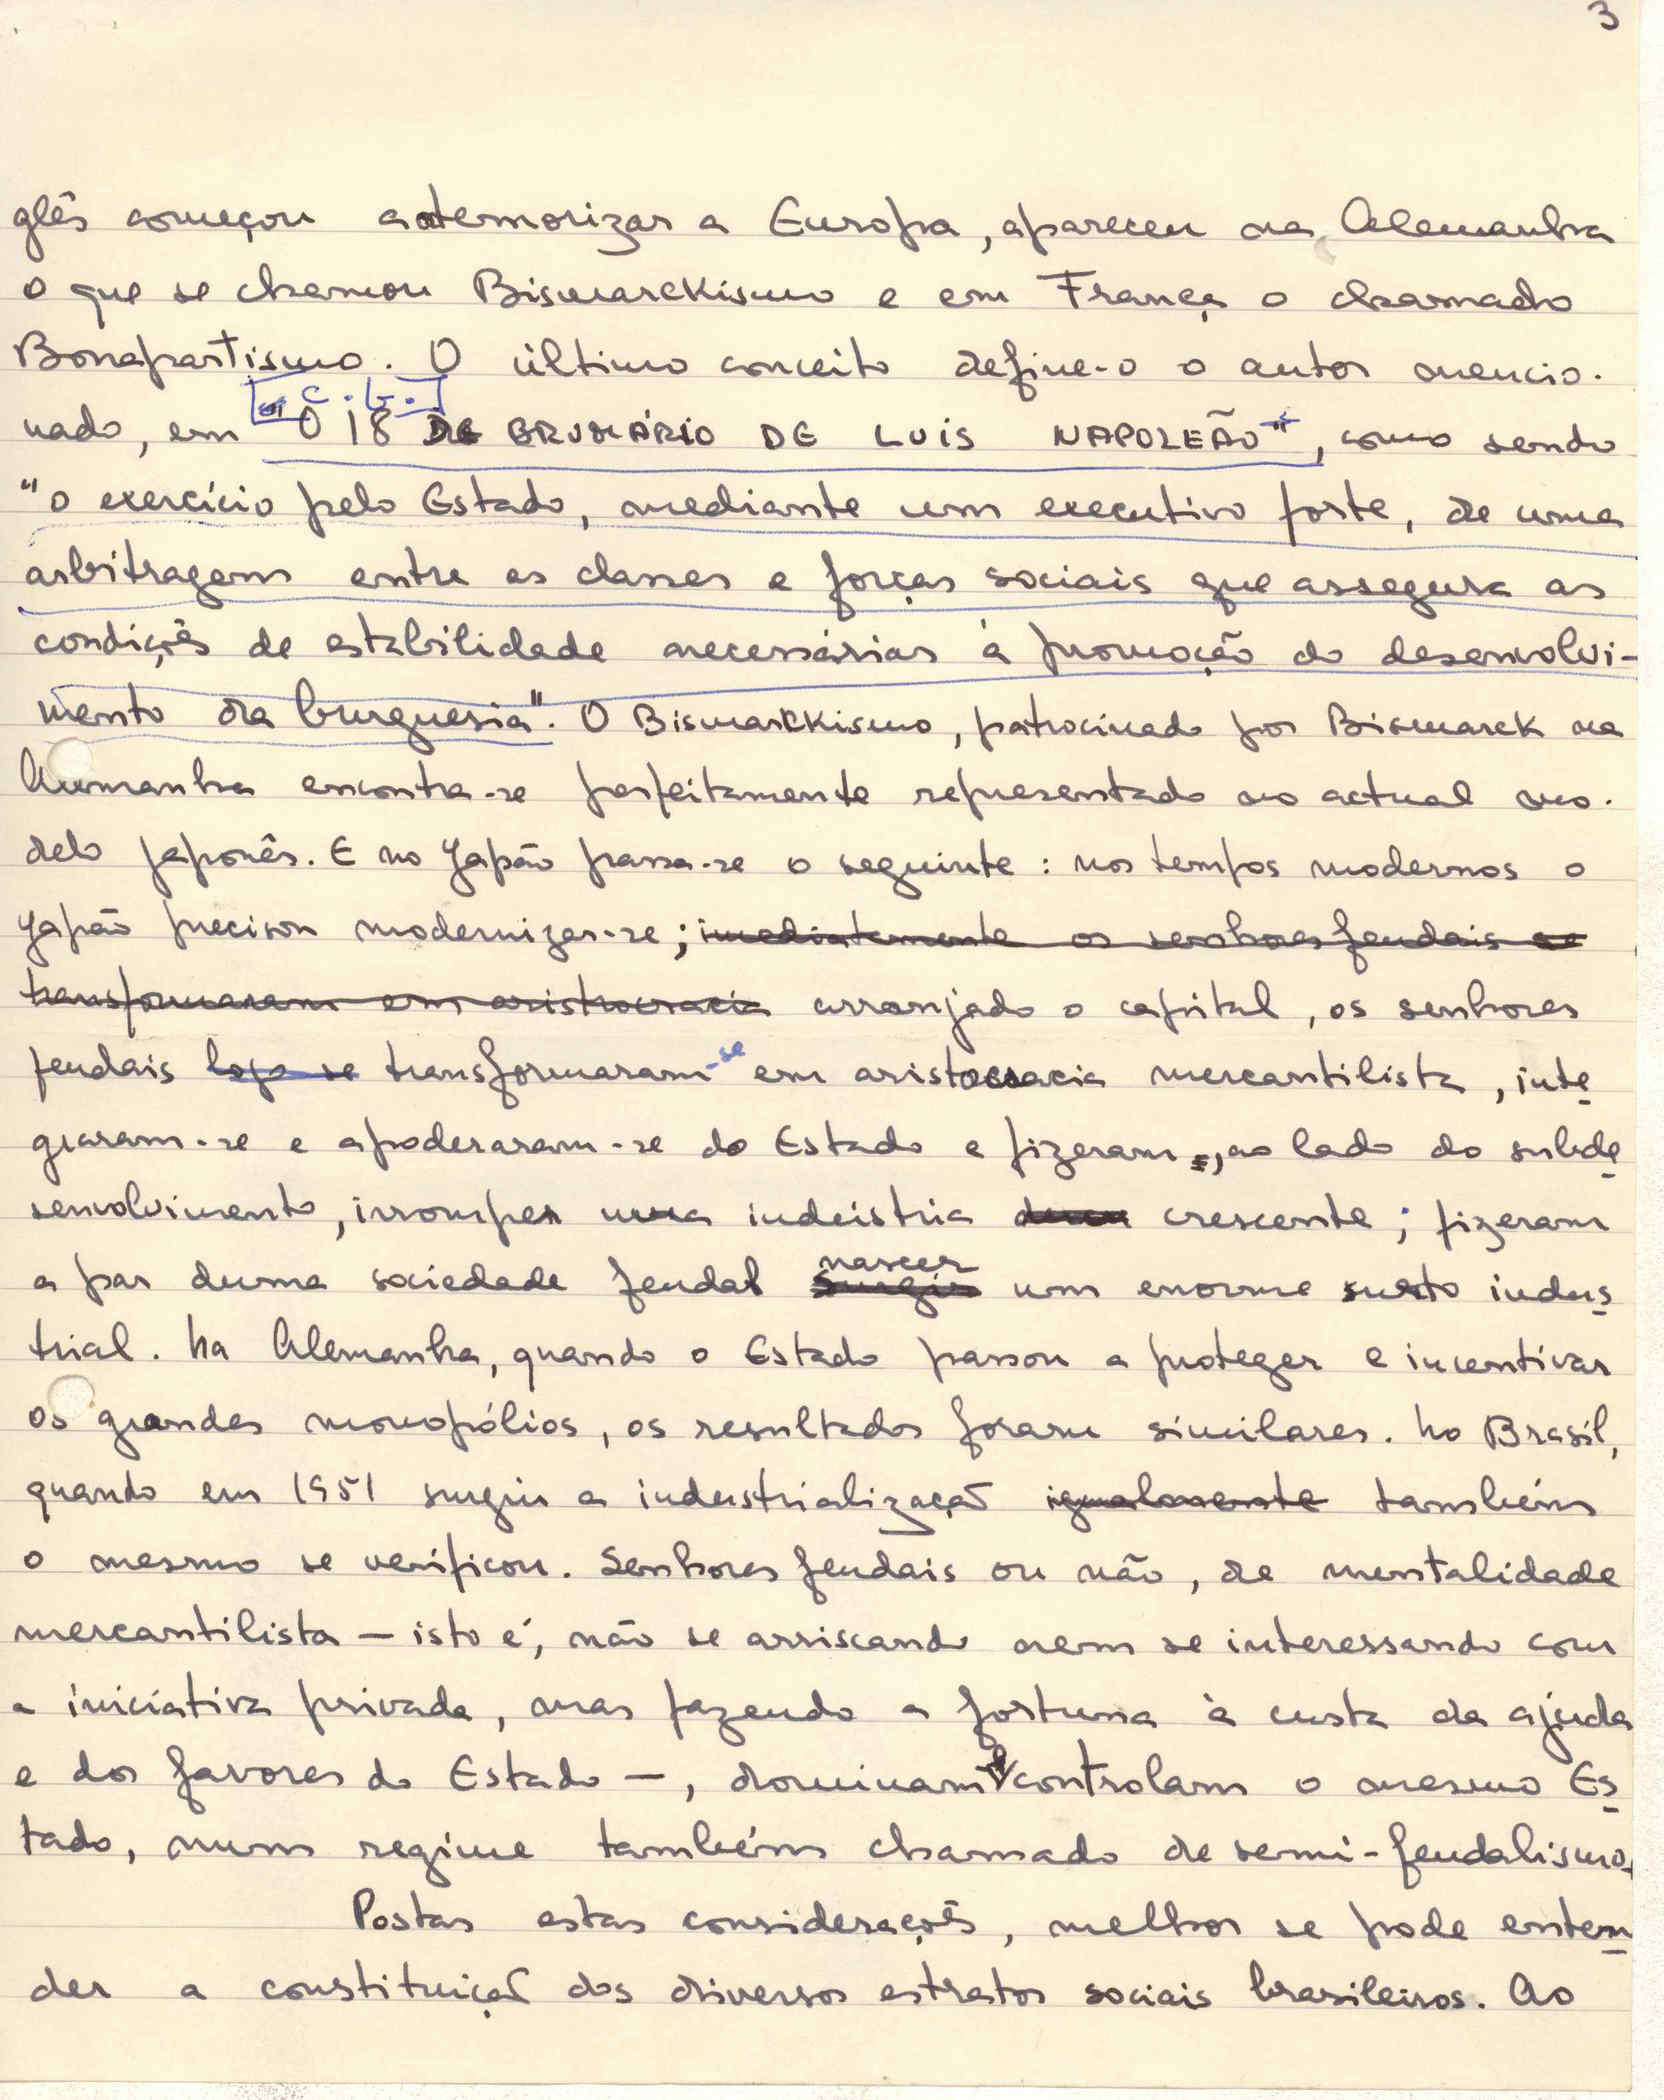 3
glês começou a atemorizar a Europa, apareceu na Alemanha
o que se chamou Bismarckismo e em França o chamado
Bonapartismo. O último conceito define-o o autor mencio-
C. G.
nado, em "O 18 DE BRUMÁRIO DE LUIS NAPOLEÃO", como sendo
"o exercício pelo Estado, mediante um executivo forte, de uma
arbitragem entre as classes e forças sociais que assegura as
condições de estabilidade necessárias à promoção do desenvolvi-
mento da burguesia". O Bismarckismo, patrocinado por Bismarck na
Alemanha encontra-se perfeitamente representado no actual mo-
delo japonês. E no Japão passa-se o seguinte: nos tempos modernos o
Japão precisou modernizar-se; imediatamente os senhores feudais se
transformaram em aristocracia arranjado o capital, os senhores
feudais logo se transformaram-se em aristocracia mercantilista, inte
graram-se e apoderaram-se do Estado e fizeram, ao lado do subde
senvolvimento, irromper uma indústria crescente; fizeram
a par duma sociedade feudal surgir nascer um enorme surto indus
trial. Na Alemanha, quando o Estado passou a proteger e incentivar
os grandes monopólios, os resultados foram similares. No Brasil,
quando em 1951 surgiu a industrialização igualmente também
o mesmo se verificou. Senhores feudais ou não, de mentalidade
mercantilista — isto é, não se arriscando nem se interessando com
a iniciativa privada, mas fazendo a fortuna à custa da ajuda
e dos favores do Estado —, dominam e controlam o mesmo Es
tado, num regime também chamado de semi-feudalismo.
Postas estas considerações, melhor se pode enten
der a constituição dos diversos estratos sociais brasileiros. Ao